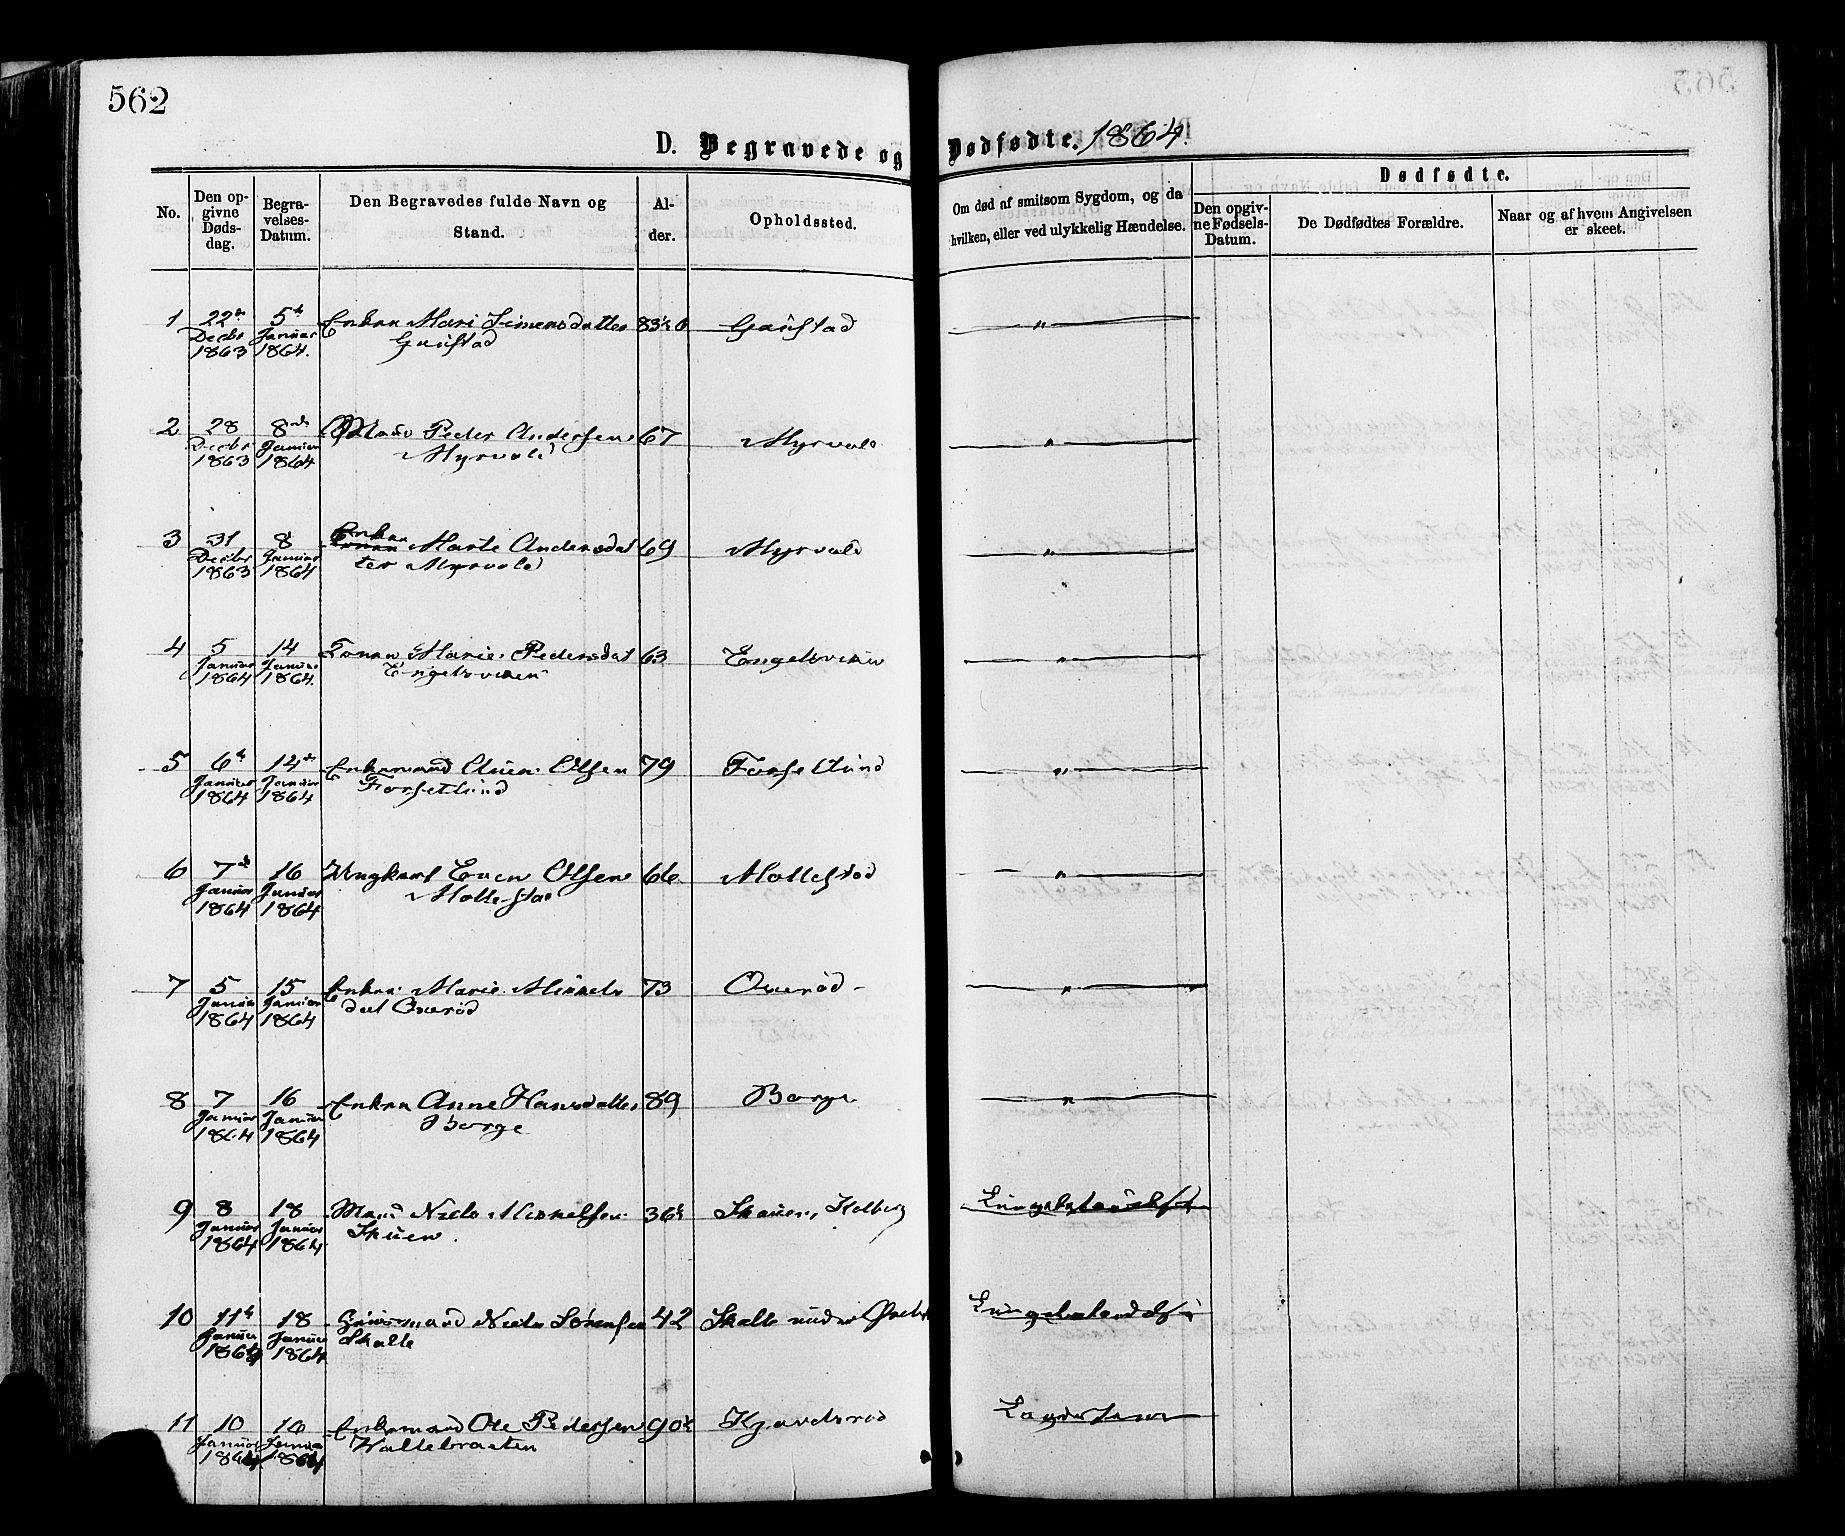 562
D. Begravede og Dødfødte. 1864.
No.
Den opgivne Dødsdag.
Begravelses-Datum.
Den Begravedes fulde Navn og Stand.
Alder.
Opholdssted.
Om død af smitsom Sygdom, og da hvilken, eller ved ulykkelig Hændelse.
Dødfødte.
Den opgivne Fødsels-Datum.
De Dødfødtes Forældre.
Naar og af hvem Angivelsen er skeet.
1 22de 5te Enken Mari Simensdatter 83½ Gaustad "
Decbr Januar Gaustad
1863 1864.
2 28 8de Peder Andersen 67 Myrvold "
Decbr Januar Myrvold
1863 1864
3 31 8 Enken Marte Andersdat 69 Myrvold "
Decbr Januar ter Myrvold
1863 1864
4 5 14 Konen Marie Pedersdat 63 Engelsviken "
Januar Januar Engelsviken
1864 1864.
5 6te 14de Enkemand Olsen 79 Forsetlund "
Januar Januar Forsetlund
1864 1864
6 7de 16 Ungkarl Even Olsen 66 Mollestad "
Januar Januar Mollestad
1864 1864
7 5 15 Enken Marie Mikkels 73 Ouerød "
Januar Januar dat Ouerød
1864 1864
8 7 16 Enken Anne Hansdatter 89 Borge "
Januar Januar Borge
1864 1864
9 8 18 Mand Niels Mikkelsen 36½ Skauen, Kolberg
Januar Januar Skuen
1864 1864
10 11te 18 Niels Sørensen 42 Skolte under
Januar Januar Skolte
1864 1864
11 10 16 Enkemand Ole Pedersen 90½
Januar Januar Haltebraaten
1864 1864